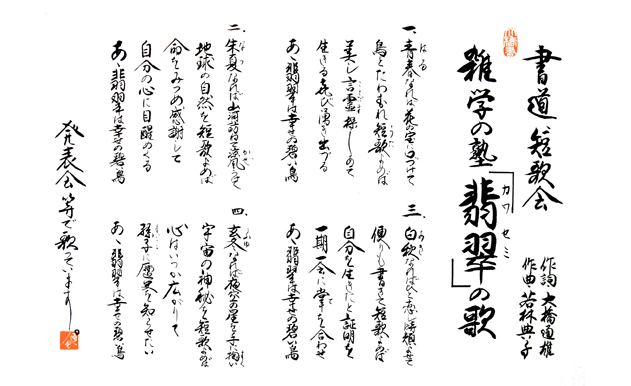 書道 短歌会
雑学の塾「翡翠の歌」
カワセミ
作詞 大橋
作曲 若林典子
一、青春なれば
はる
鳥とたわむれ短歌よめば
うた
美し言霊
生きる喜び湧き出づる
あゝ翡翠は幸せの碧い鳥
二、朱夏なれば山河
地球の自然を短歌よめば
命をみつめ感謝して
自分の心に目醒めくる
あゝ翡翠は幸せの碧い鳥
三、白秋なれば
便りも書きて短歌よめば
自分を生きたと証明を
一期一会に掌を合わせ
あゝ翡翠は幸せの碧い鳥
四、玄冬なれば夜空の星を
宇宙の神秘を短歌よめば
心はいつか広がりて
孫子に歴史を知らせたい
あゝ翡翠は幸せの碧い鳥
発表会等で歌っています。